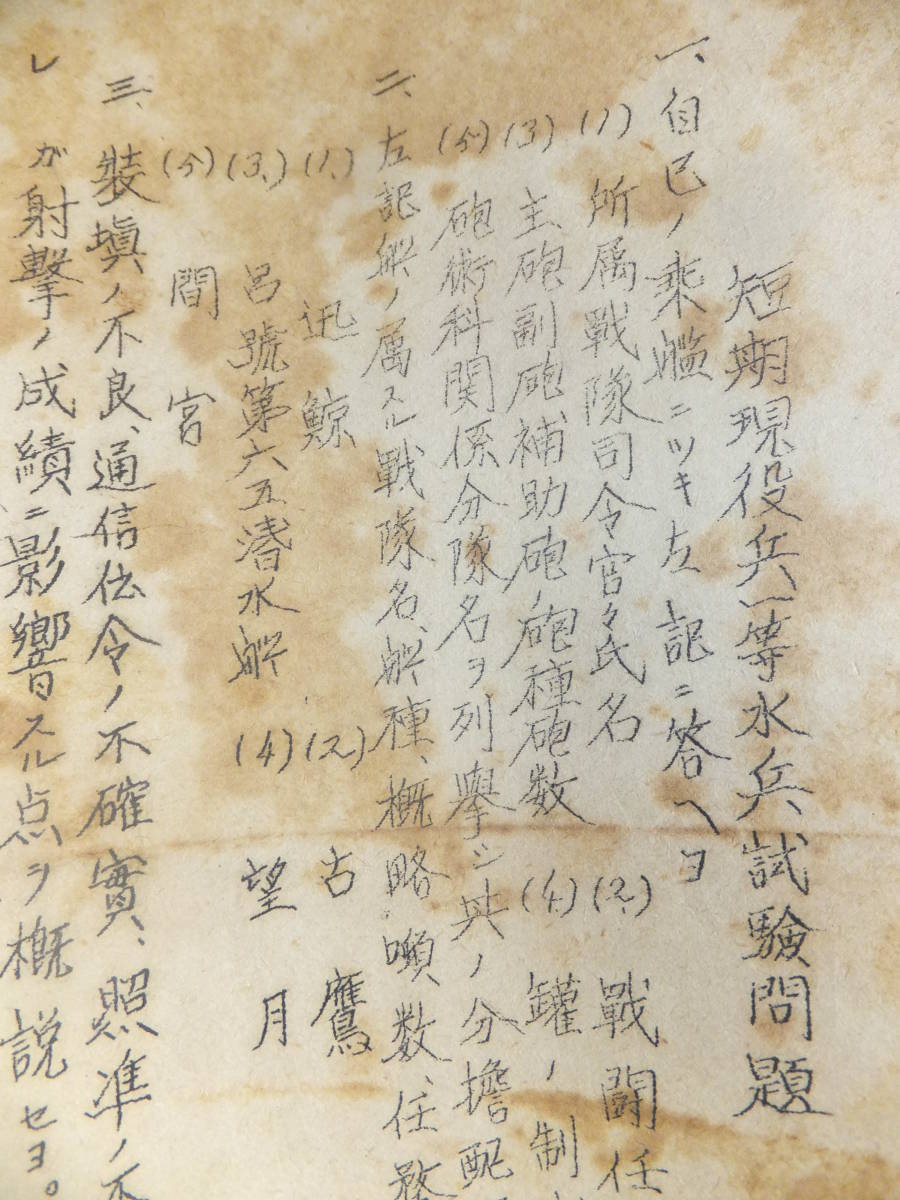 短期現役兵一等水兵試験問題
一、自己ノ乗艦ニツキ左記ニ答ヘヨ
(1) 所属戦隊司令官々氏名 (2) 戦闘任
(3) 主砲副砲補助砲ノ砲種砲数 (4) 罐ノ制
(5) 砲術科関係分隊名ヲ列擧シ其ノ分擔配
二、左記艦ノ属スル戦隊名、艦種、概略噸数、任務
(1) 迅鯨 (2) 古鷹
(3) 呂號第六五潜水艦 (4) 望月
(5) 間宮
三、装塡ノ不良、通信伝令ノ不確實、照準ノ不
レガ射撃ノ成績ニ影響スル点ヲ概説セヨ。